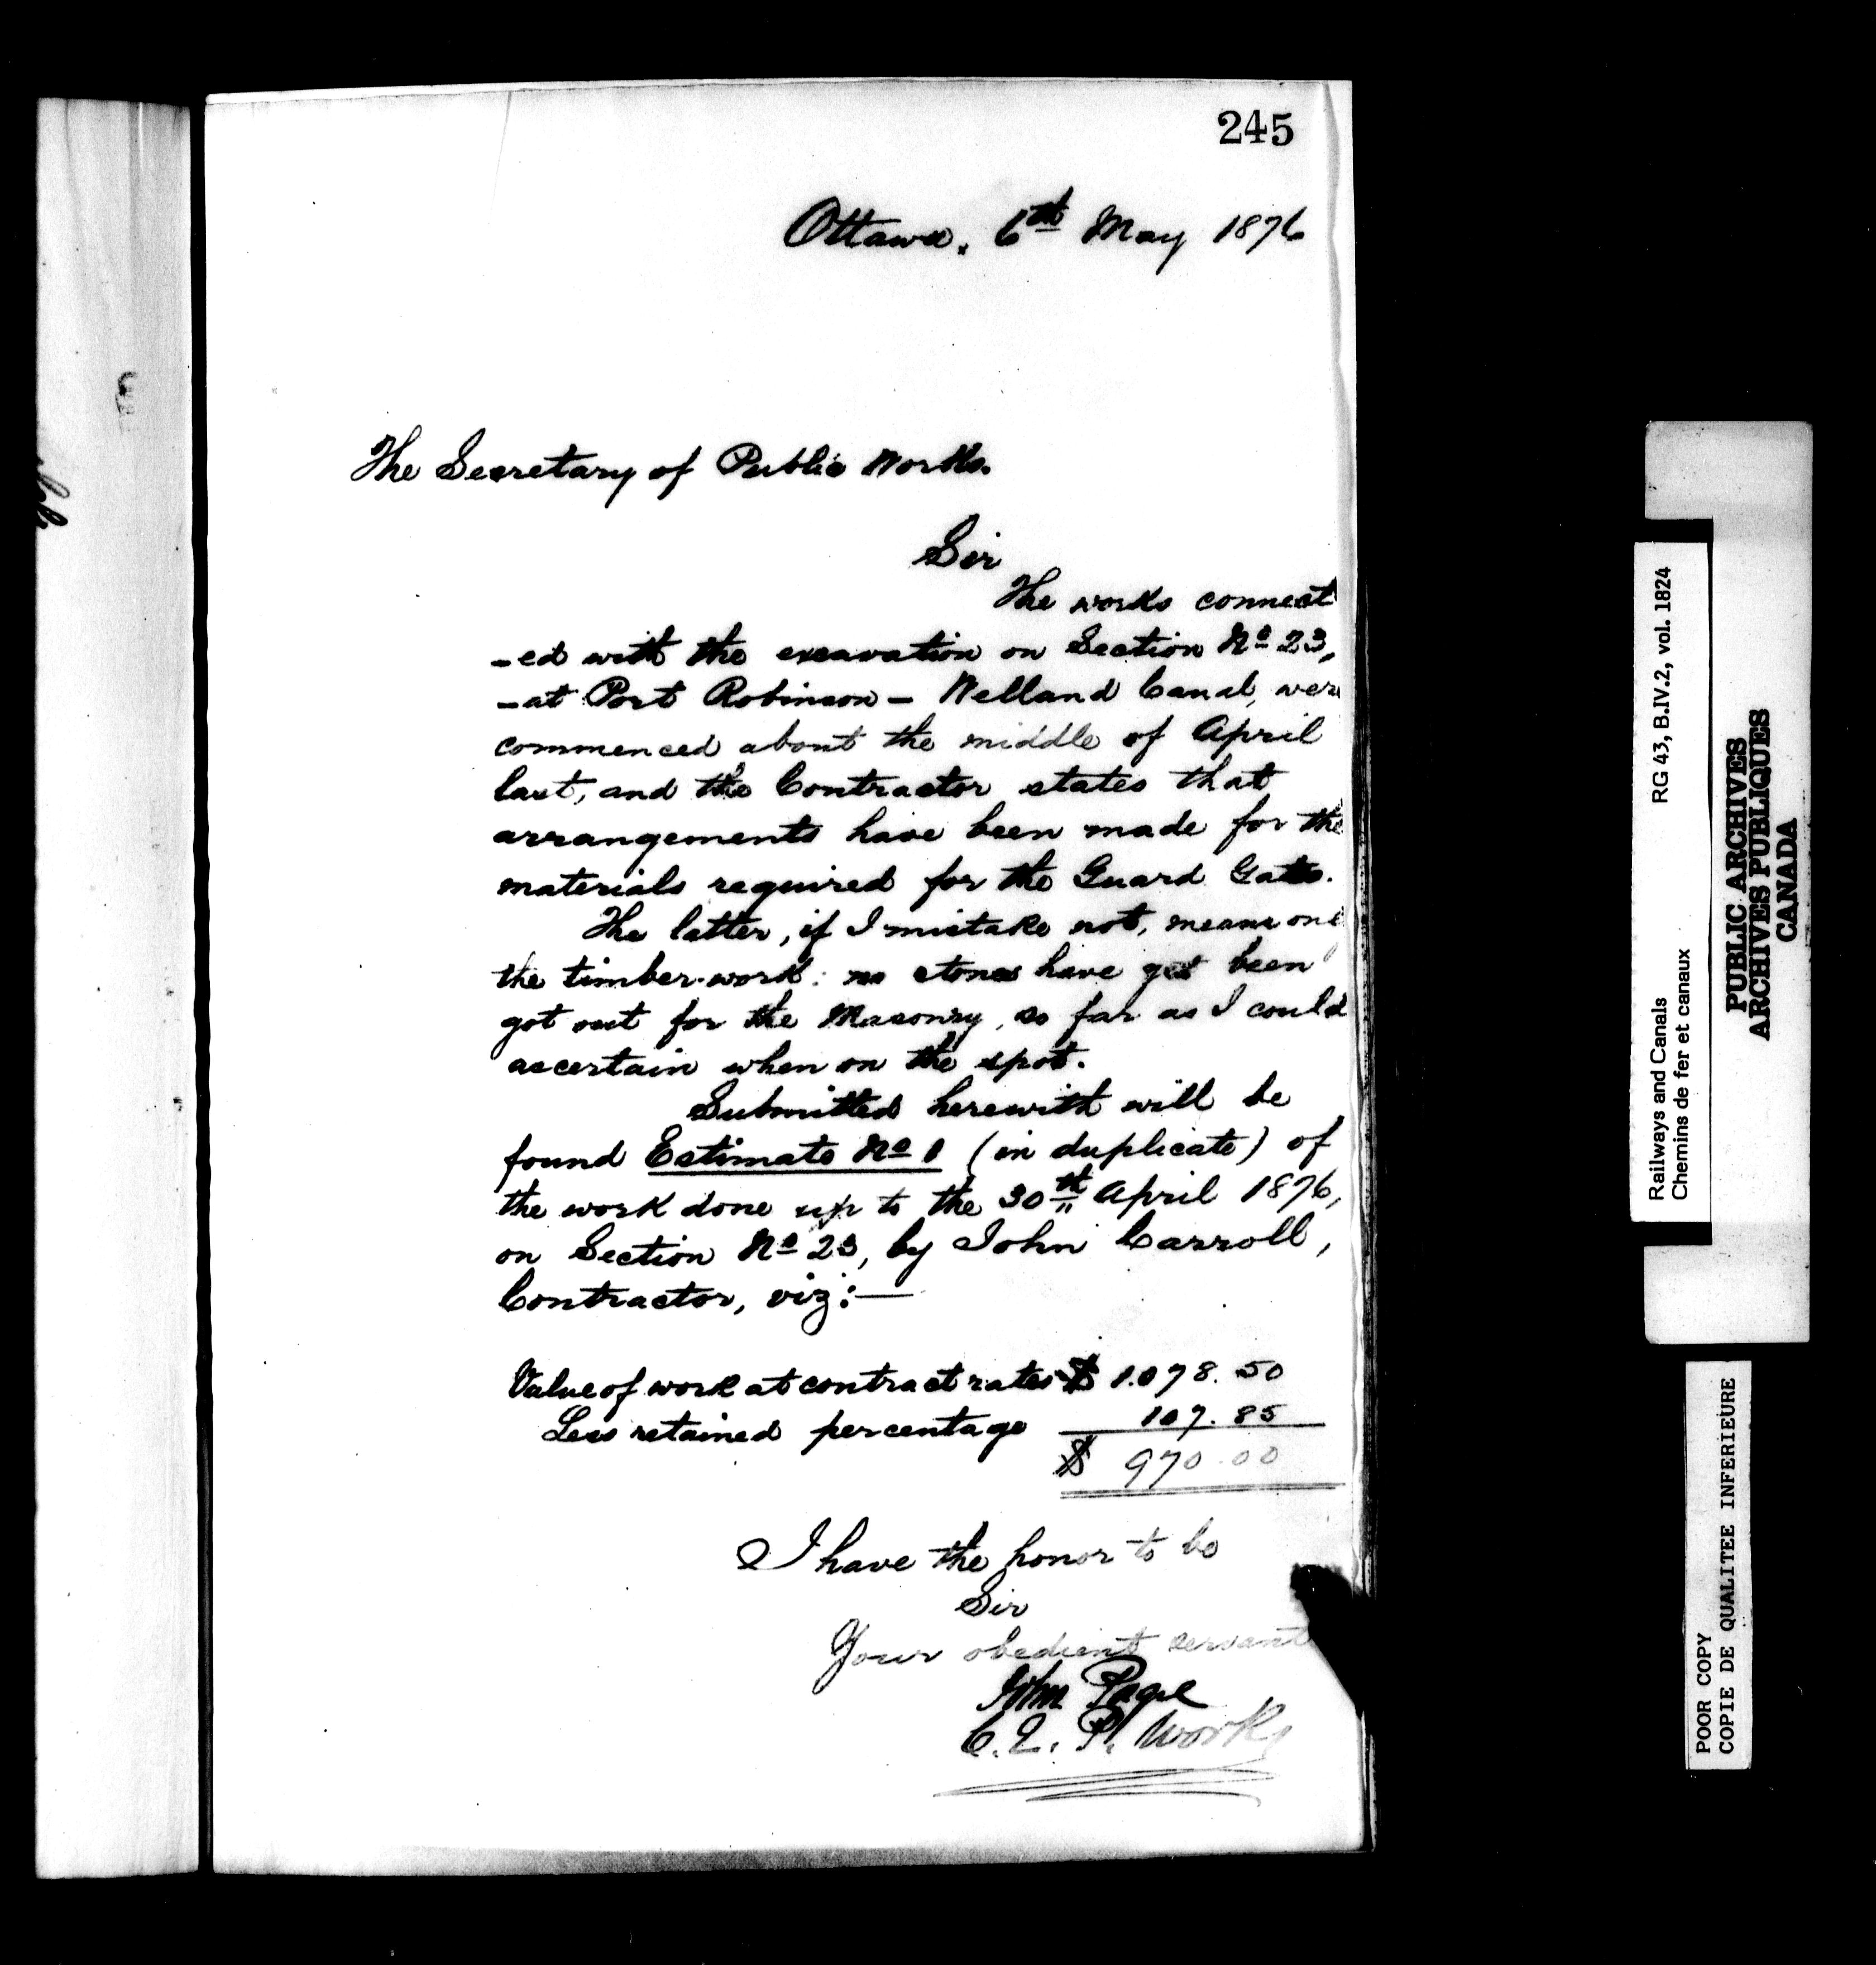 245
Ottawa. 6th May 1876
The Secretary of Public Works.
Sir
The works connect
-ed with the excavation on Section No 23,
-at Port Robinson - Welland Canal, were
commenced about the middle of April
last, and the Contractor states that
arrangements have been made for the
materials required for the Guard Gates.
The latter, if I mistake not, means onl
the timber-work: no stones have yet been
got out for the Masonry, so far as I could
ascertain when on the spot.
Submitted herewith will be
found Estimate No 1 (in duplicate) of
the work done up to the 30th April 1876,
on Section No 23, by John Carroll,
Contractor, viz:—
Value of work at contract rates $ 1.078.50
Less retained percentage 107.85
$ 970.00
I have the honor to be
Sir
Your obedient servant
John Page
C.E. P. Works
Railways and Canals RG 43, B.IV.2, vol. 1824
Chemins de fer et canaux
PUBLIC ARCHIVES
ARCHIVES PUBLIQUES
CANADA
POOR COPY
COPIE DE QUALITEE INFERIEURE